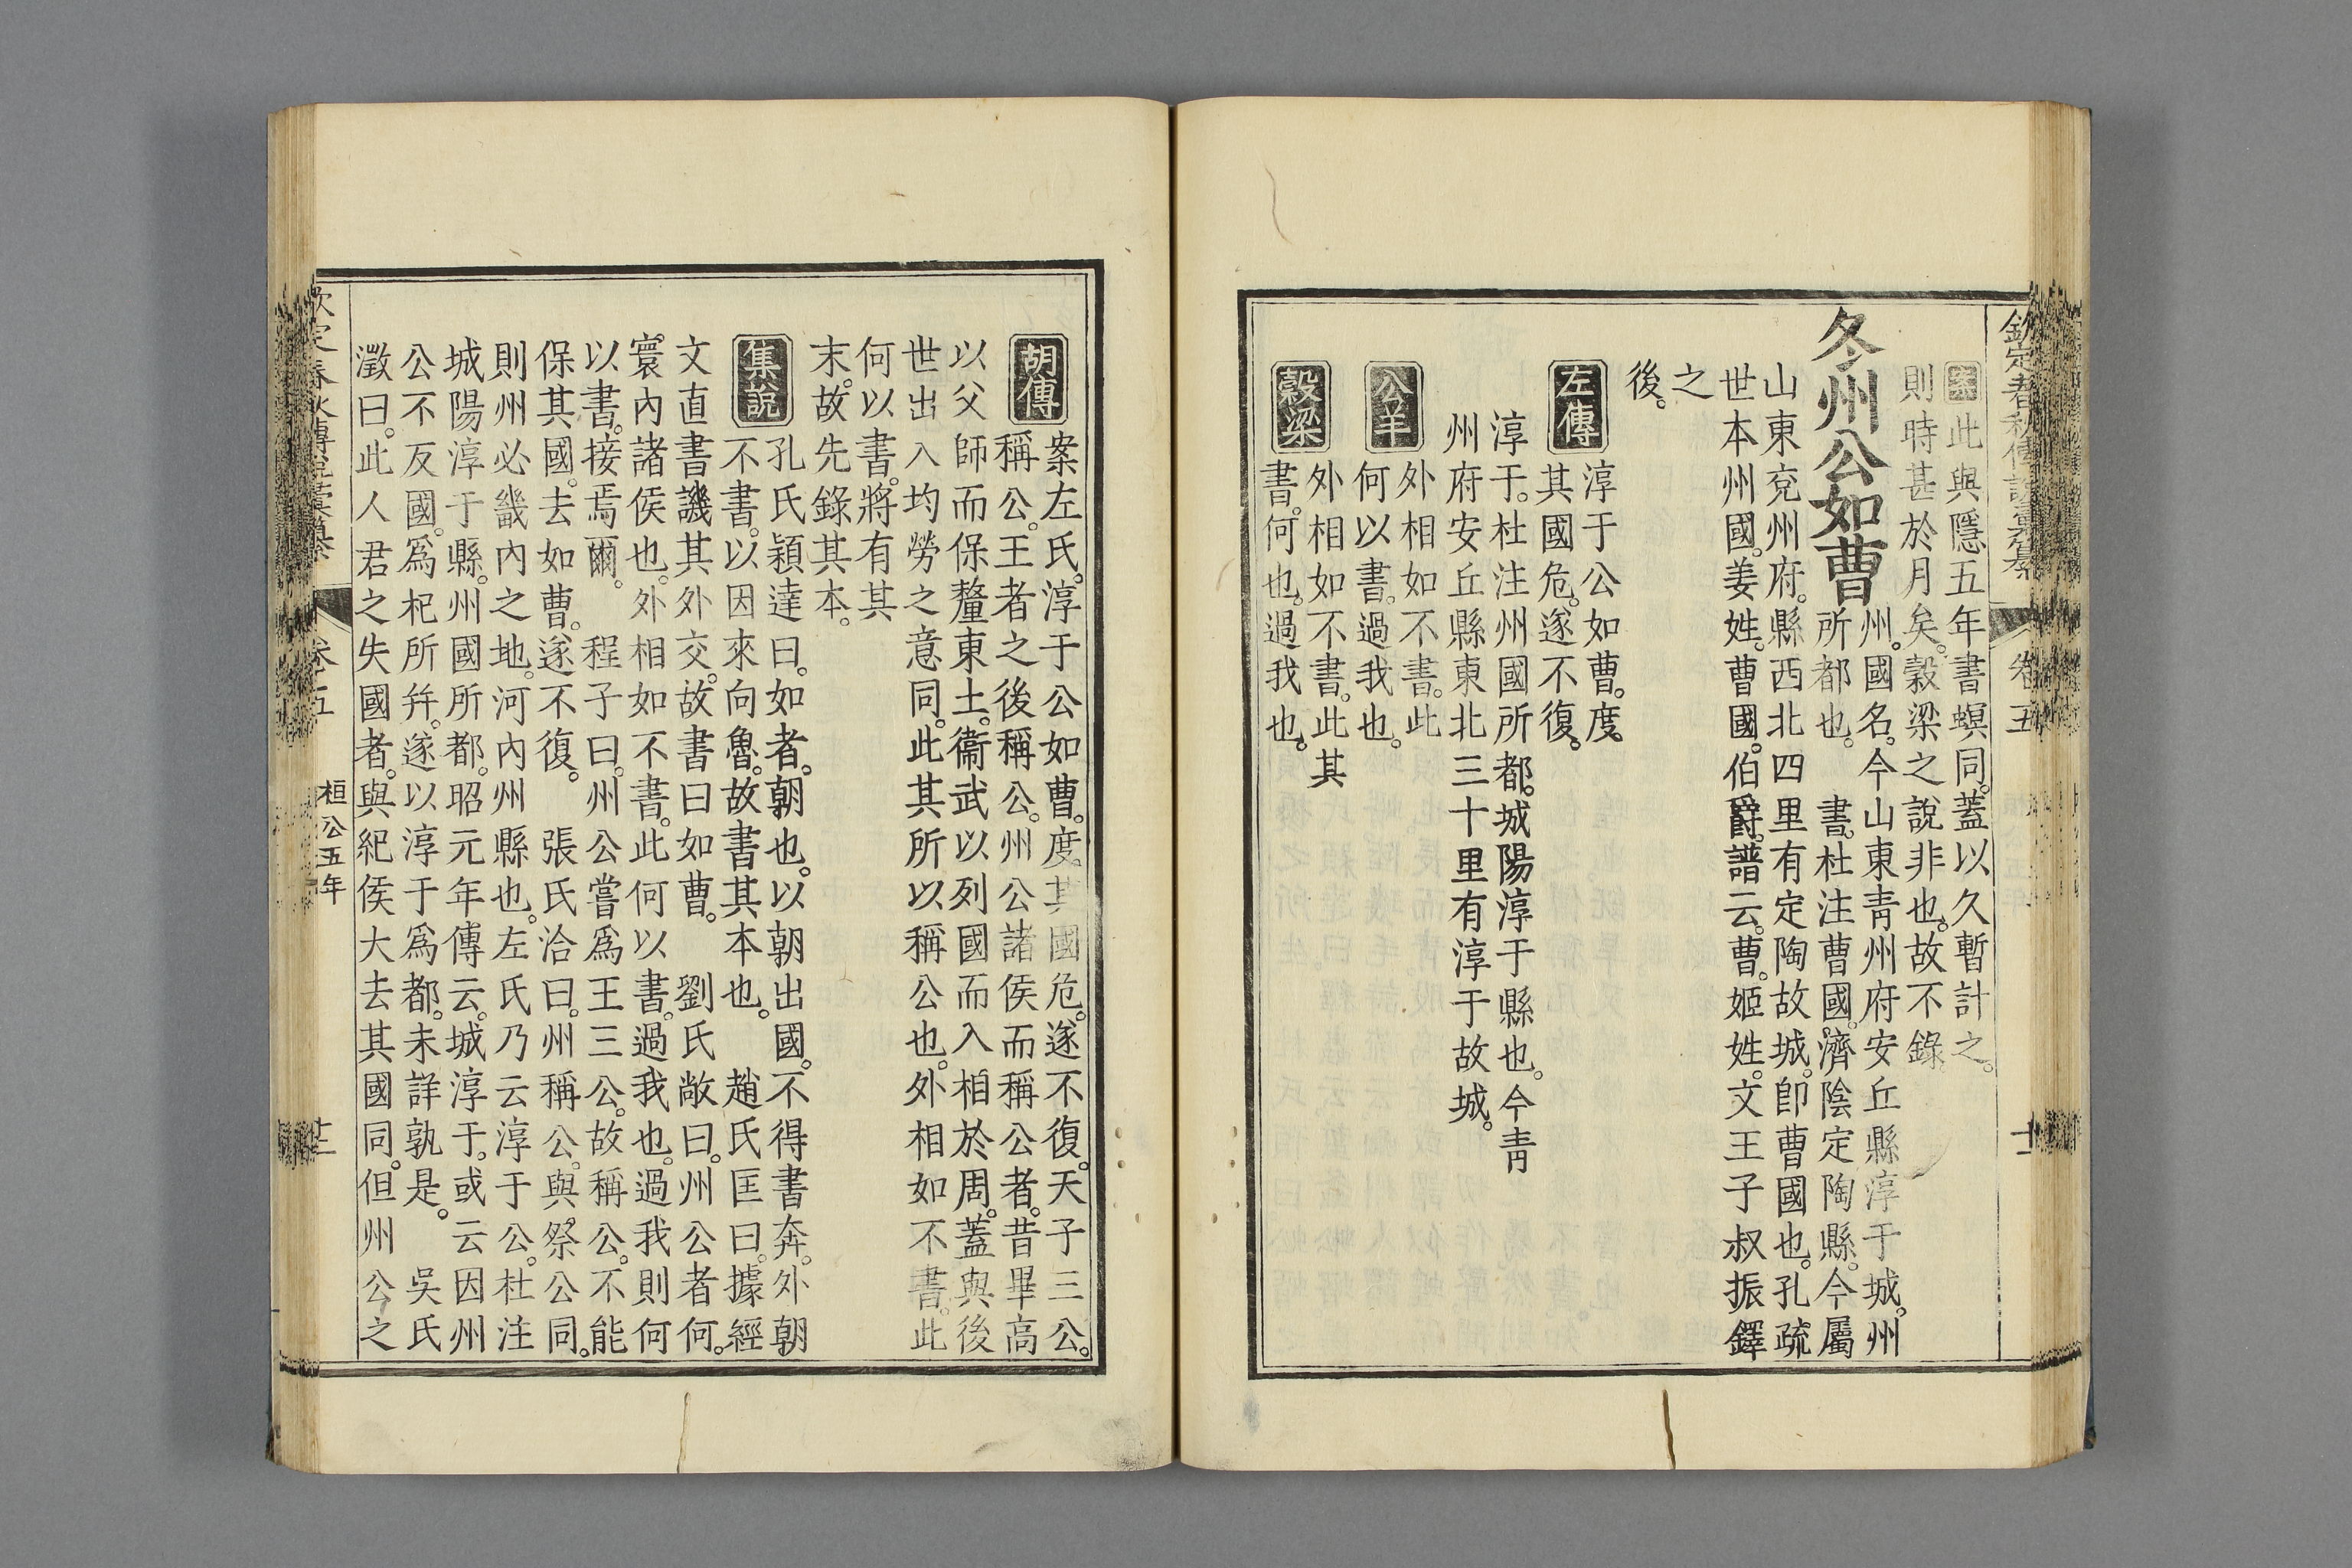 欽定春秋傳說彙纂 卷五
案此與隱五年書螟同。蓋以久暫計之。
則時甚於月矣。穀梁之說非也。故不錄。
冬州公如曹
州。國名。今山東靑州府安丘縣淳于城。州
所都也。 書。杜注曹國。濟陰定陶縣。今屬
山東兗州府。縣西北四里有定陶故城。卽曹國也。孔疏
世本州國。姜姓。曹國。伯爵。譜云。曹。姬姓。文王子叔振鐸
之
後。
左傳
淳于公如曹。度
其國危。遂不復。
淳于。杜注州國所都。城陽淳于縣也。今靑
州府安丘縣東北三十里有淳于故城。
公羊
外相如不書。此
何以書。過我也。
穀梁
外相如不書。此其
書。何也。過我也。
胡傳
案左氏。淳于公如曹。度其國危。遂不復。天子三公。
稱公。王者之後稱公。州公諸侯而稱公者。昔畢高
以父師而保釐東土。衞武以列國而入相於周。蓋與後
世出入均勞之意同。此其所以稱公也。外相如不書。此
何以書。將有其
末。故先錄其本。
集說
孔氏穎達曰。如者。朝也。以朝出國。不得書奔。外朝
不書。以因來向魯。故書其本也。 趙氏匡曰。據經
文直書譏其外交。故書曰如曹。 劉氏敞曰。州公者何。
寰內諸侯也。外相如不書。此何以書。過我也。過我則何
以書。接焉爾。 程子曰。州公嘗爲王三公。故稱公。不能
保其國。去如曹。遂不復。 張氏洽曰。州稱公。與祭公同。
則州必畿內之地。河內州縣也。左氏乃云淳于公。杜注
城陽淳于縣。州國所都。昭元年傳云。城淳于。或云因州
公不反國。爲杞所幷。遂以淳于爲都。未詳孰是。 吳氏
澂曰。此人君之失國者。與紀侯大去其國同。但州公之
欽定春秋傳說彙纂 卷五 桓公五年